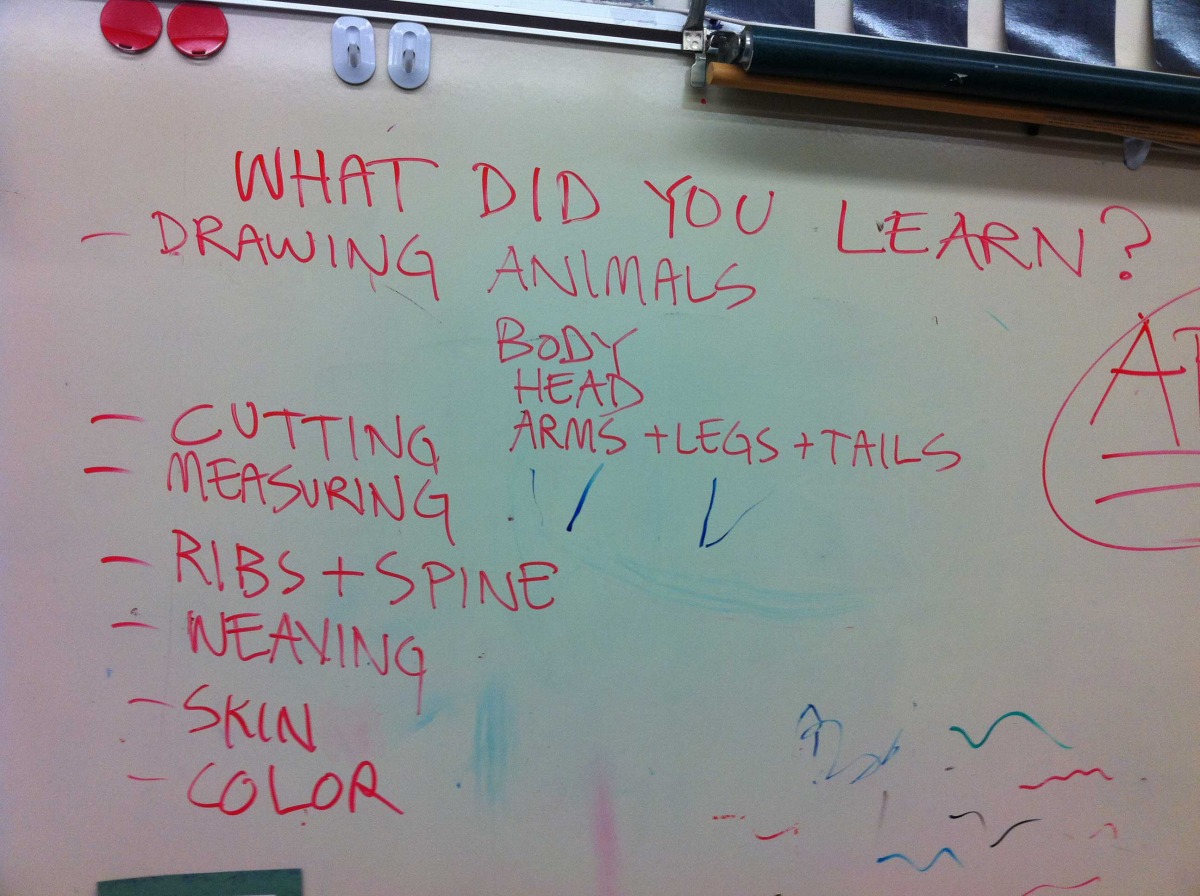 WHAT DID YOU LEARN?
- DRAWING ANIMALS
BODY
HEAD
ARMS + LEGS + TAILS
- CUTTING
- MEASURING
- RIBS + SPINE
- WEAVING
- SKIN
- COLOR